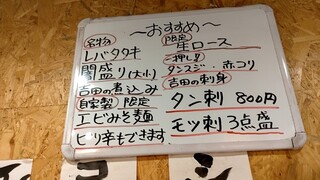 ～おすすめ～
名物
レバタタキ
闇盛り(大小)
吉田の煮込み
自家製 限定
エビみそ麺
ピリ辛もできます
限定
生ロース
ご一押し!!
タンスジ・赤コリ
吉田の刺身
タン刺 800円
モツ刺3点盛